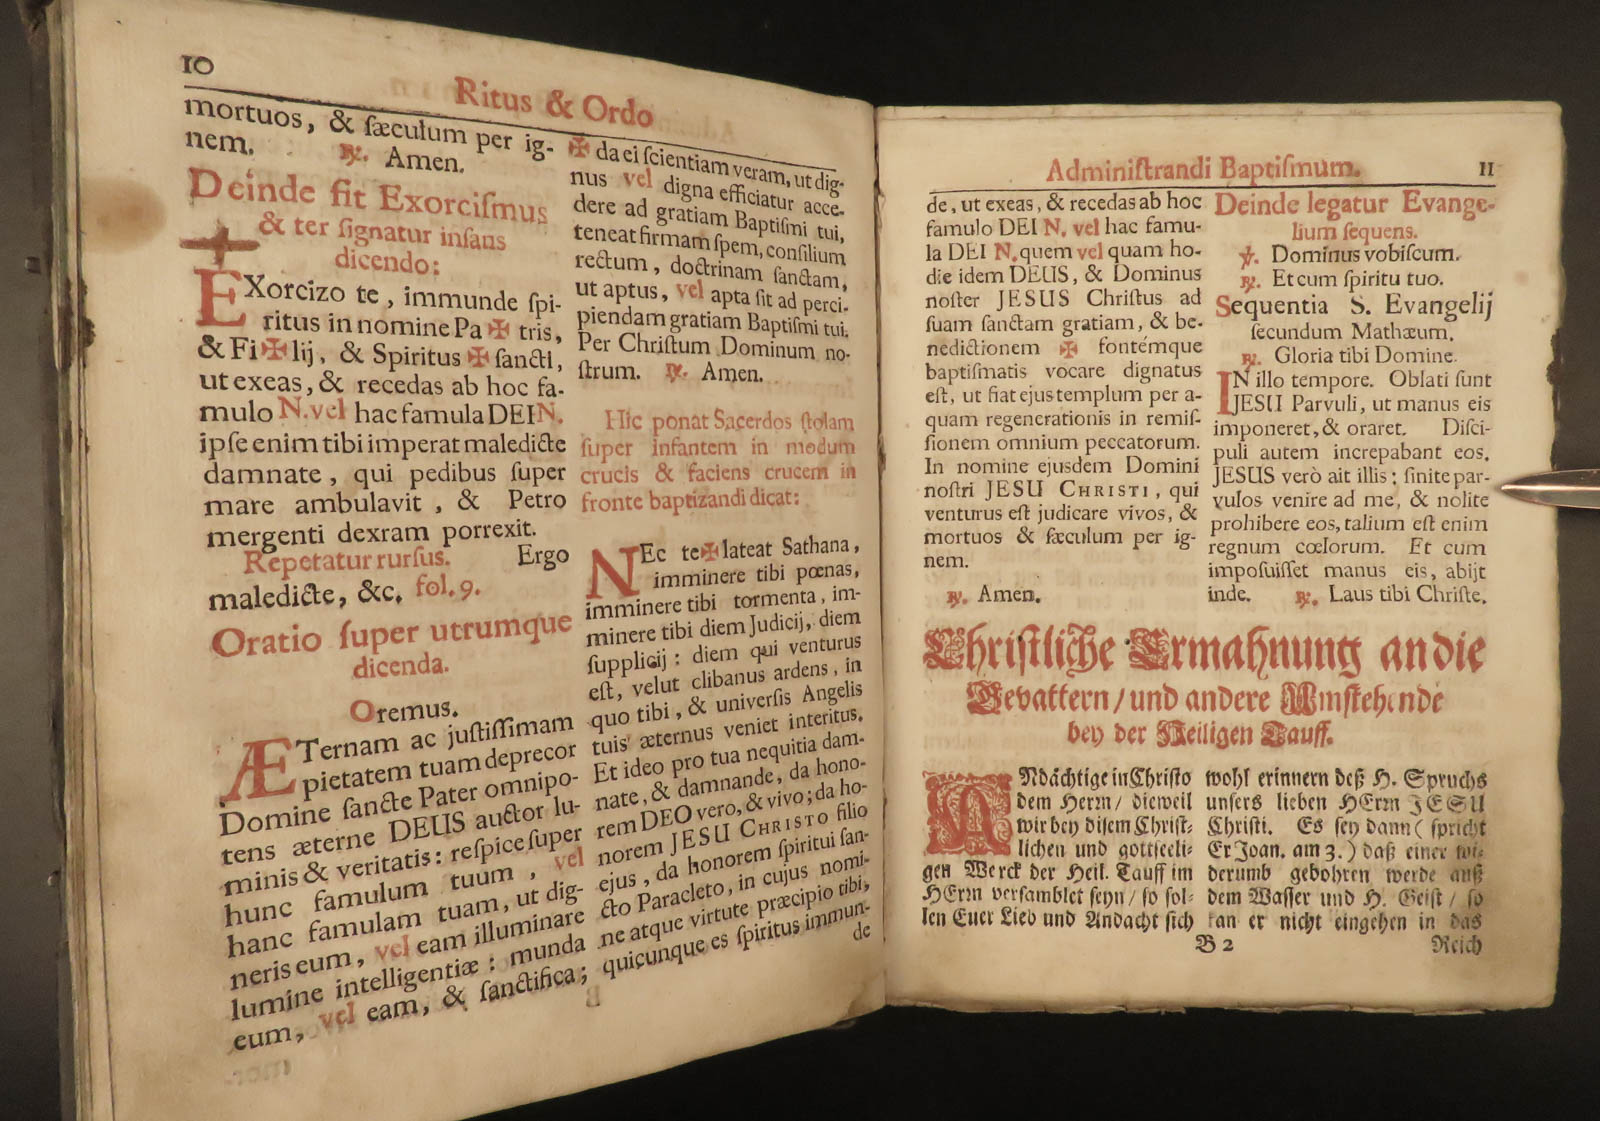 10
Ritus & Ordo
mortuos, & sæculum per ig-
nem. ℟. Amen.
Deinde fit Exorcismus
& ter signatur infans
dicendo:
EXorcizo te, immunde spi-
ritus in nomine Pa ✠ tris,
& Fi ✠ lij, & Spiritus ✠ sancti,
ut exeas, & recedas ab hoc fa-
mulo N. vel hac famula DEI N.
ipse enim tibi imperat maledicte
damnate, qui pedibus super
mare ambulavit, & Petro
mergenti dexram porrexit.
Repetatur rursus. Ergo
maledicte, &c. fol. 9.
Oratio super utrumque
dicenda.
Oremus.
ÆTernam ac justissimam
pietatem tuam deprecor
Domine sancte Pater omnipo-
tens æterne DEUS auctor lu-
minis & veritatis: respice super
hunc famulum tuum, vel
hanc famulam tuam, ut dig-
neris eum, vel eam illuminare
lumine intelligentiæ: munda
eum, vel eam, & sanctifica;
✠ da ei scientiam veram, ut dig-
nus vel digna efficiatur acce-
dere ad gratiam Baptismi tui,
teneat firmam spem, consilium
rectum, doctrinam sanctam,
ut aptus, vel apta sit ad perci-
piendam gratiam Baptismi tui.
Per Christum Dominum no-
strum. ℟. Amen.
Hic ponat Sacerdos stolam
super infantem in modum
crucis & faciens crucem in
fronte baptizandi dicat:
NEc te ✠ lateat Sathana,
imminere tibi pœnas,
imminere tibi tormenta, im-
minere tibi diem Judicij, diem
supplicij: diem qui venturus
est, velut clibanus ardens, in
quo tibi, & universis Angelis
tuis æternus veniet interitus.
Et ideo pro tua nequitia dam-
nate, & damnande, da hono-
rem DEO vero, & vivo; da ho-
norem JESU CHRISTO filio
ejus, da honorem spiritui san-
cto Paracleto, in cujus nomi-
ne atque virtute præcipio tibi,
quicunque es spiritus immun-
de
Administrandi Baptismum.
11
de, ut exeas, & recedas ab hoc
famulo DEI N. vel hac famu-
la DEI N. quem vel quam ho-
die idem DEUS, & Dominus
noster JESUS Christus ad
suam sanctam gratiam, & be-
nedictionem ✠ fontémque
baptismatis vocare dignatus
est, ut fiat ejus templum per a-
quam regenerationis in remis-
sionem omnium peccatorum.
In nomine ejusdem Domini
nostri JESU CHRISTI, qui
venturus est judicare vivos, &
mortuos & sæculum per ig-
nem.
℟. Amen.
Deinde legatur Evange-
lium sequens.
℣. Dominus vobiscum.
℟. Et cum spiritu tuo.
Sequentia S. Evangelij
secundum Mathæum.
℟. Gloria tibi Domine.
IN illo tempore. Oblati sunt
JESU Parvuli, ut manus eis
imponeret, & oraret. Disci-
puli autem increpabant eos.
JESUS verò ait illis: sinite par-
vulos venire ad me, & nolite
prohibere eos, talium est enim
regnum cœlorum. Et cum
imposuisset manus eis, abijt
inde. ℟. Laus tibi Christe.
Christliche Ermahnung an die
Gevattern / und andere Umstehende
bey der Heiligen Tauff.
ANdächtige in Christo
dem Herrn / dieweil
wir bey disem Christ-
lichen und gottseeli-
gen Werck der Heil. Tauff im
HErrn versamblet seyn / so sol-
len Euer Lieb und Andacht sich
wohl erinnern deß H. Spruchs
unsers lieben HErrn JESU
Christi. Es sey dann (spricht
Er Joan. am 3.) daß einer wi-
derumb gebohren werde auß
dem Wasser und H. Geist / so
kan er nicht eingehen in das
B 2
Reich